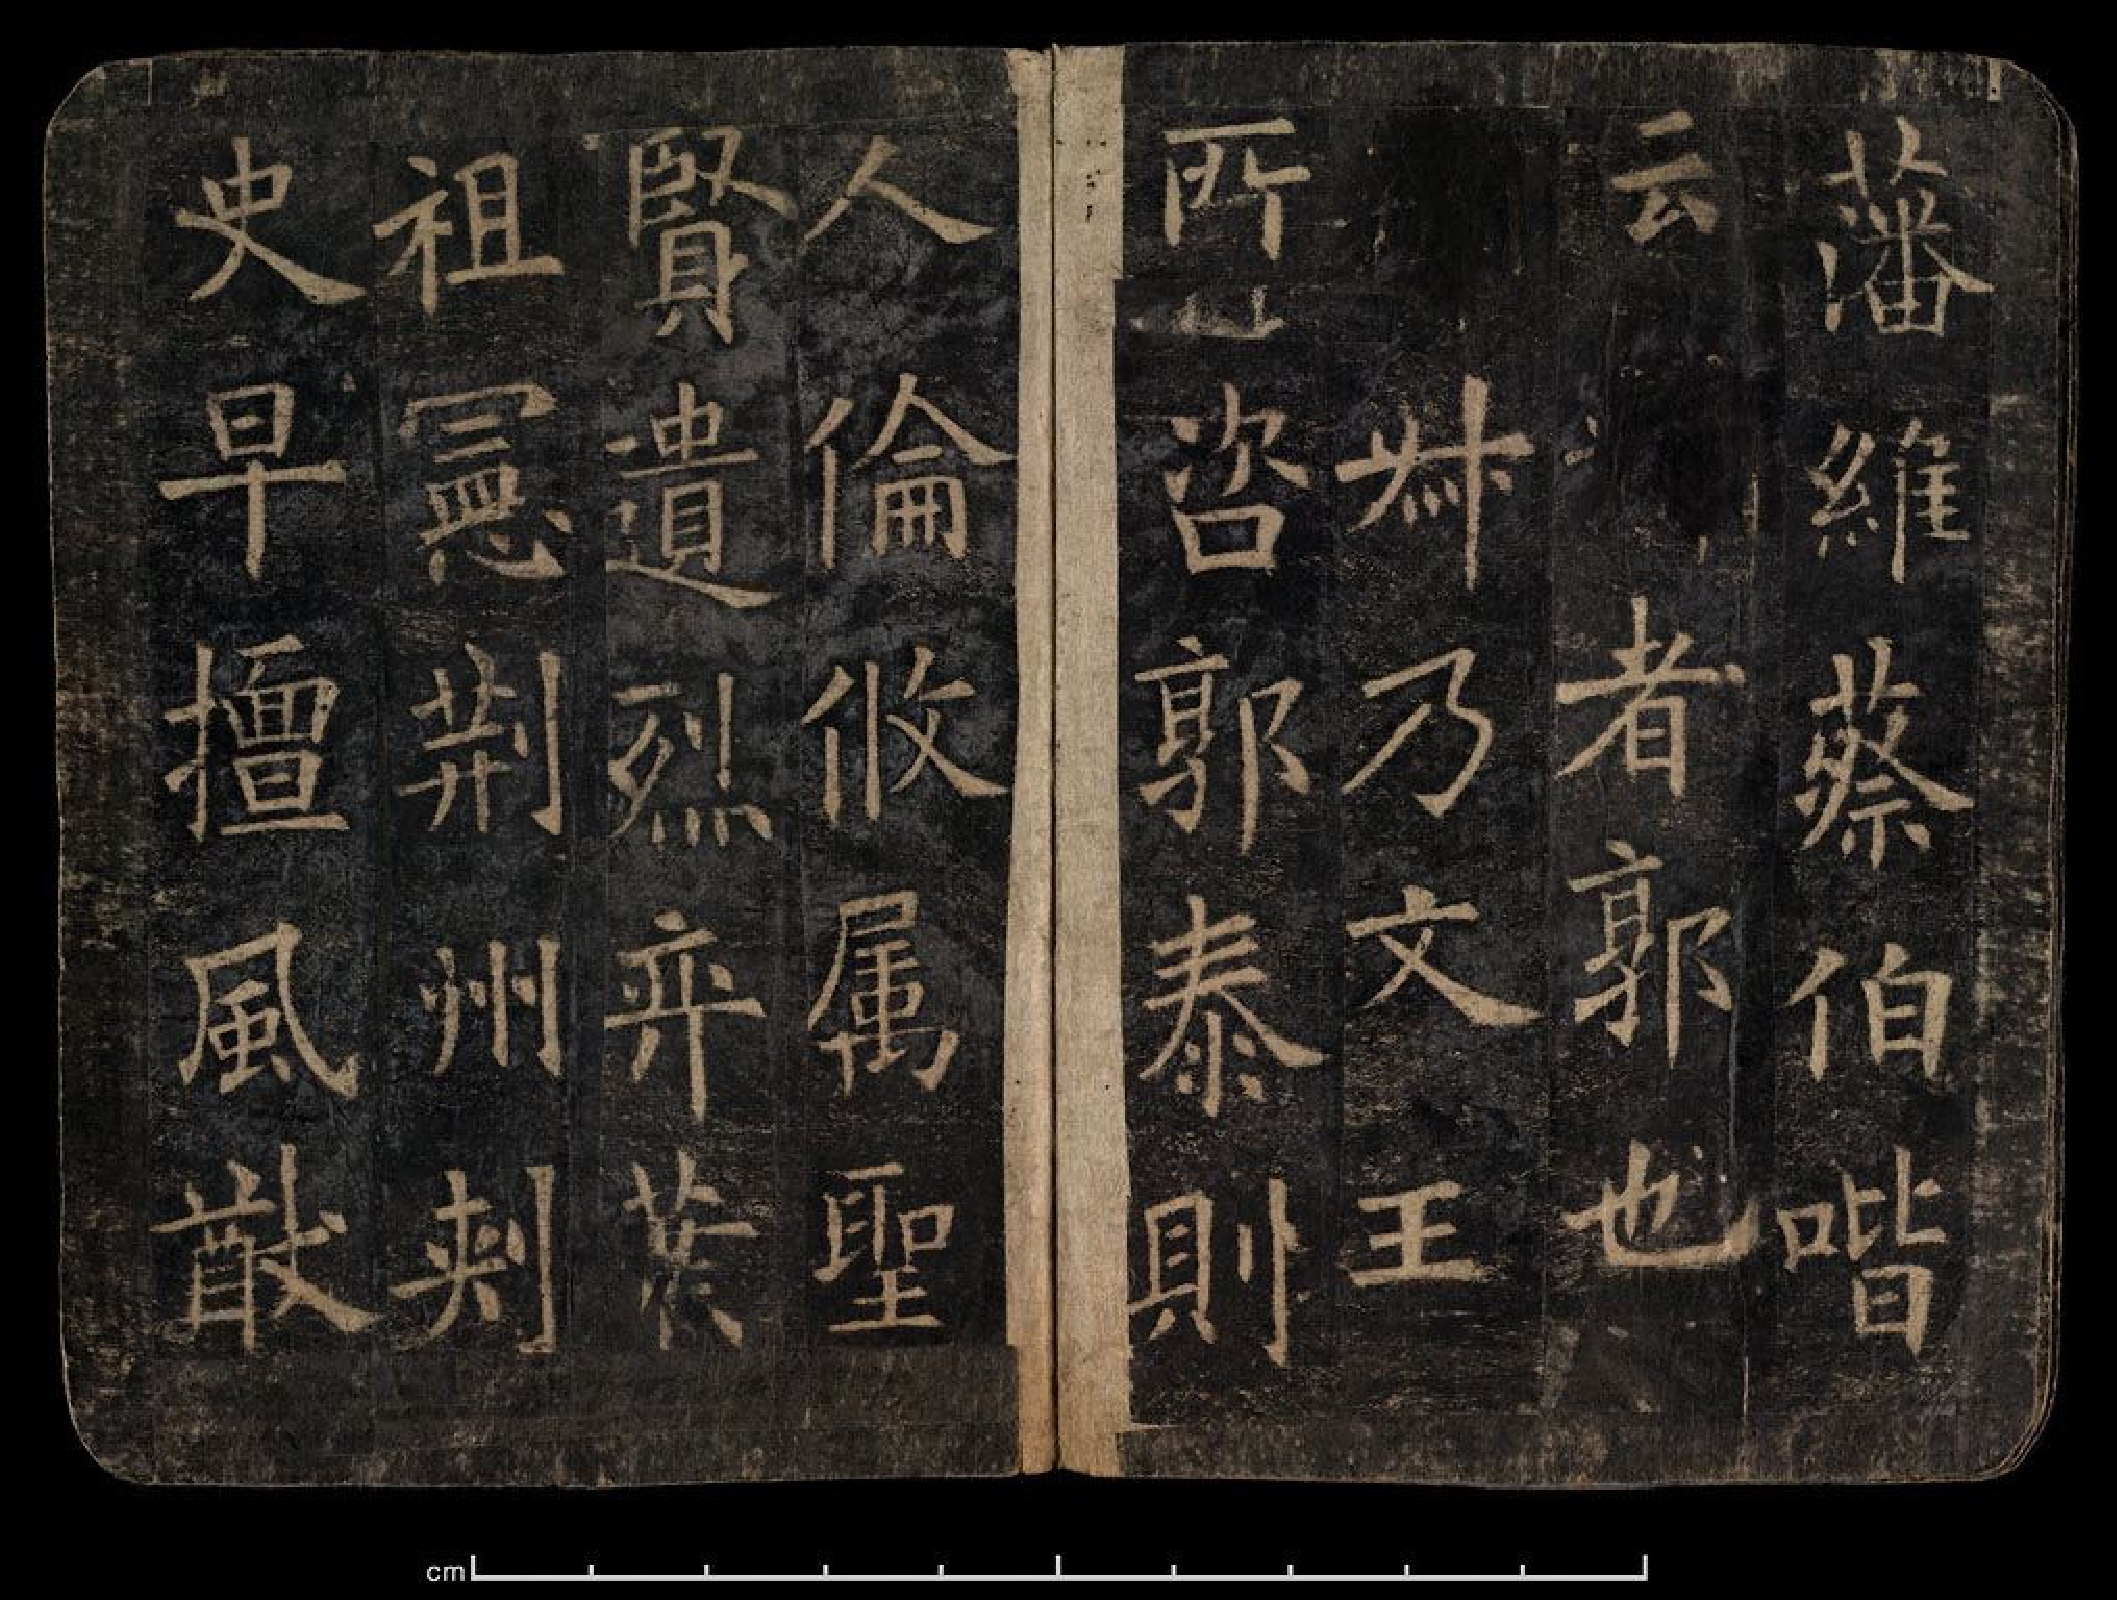 藩維蔡伯喈
云者郭也
虢叔乃文王
所咨郭泰則
人倫攸属聖
賢遺烈弈葉
祖憲荊州刾
史早擅風猷
cm